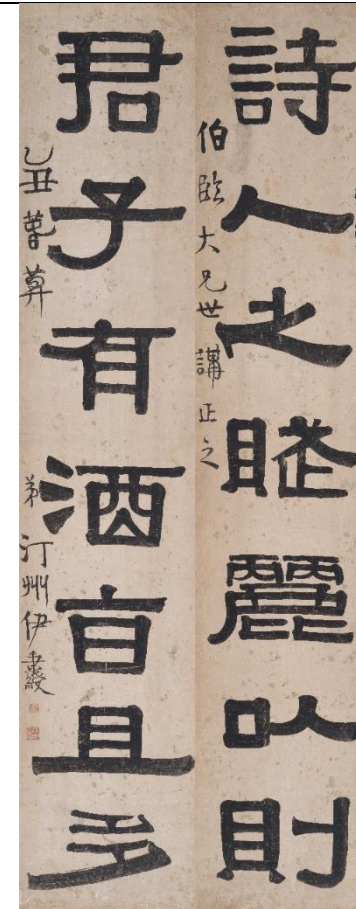 詩人之賦麗以則
伯臨大兄世講正之
君子有酒旨且多
乙丑
弟汀州伊秉綬